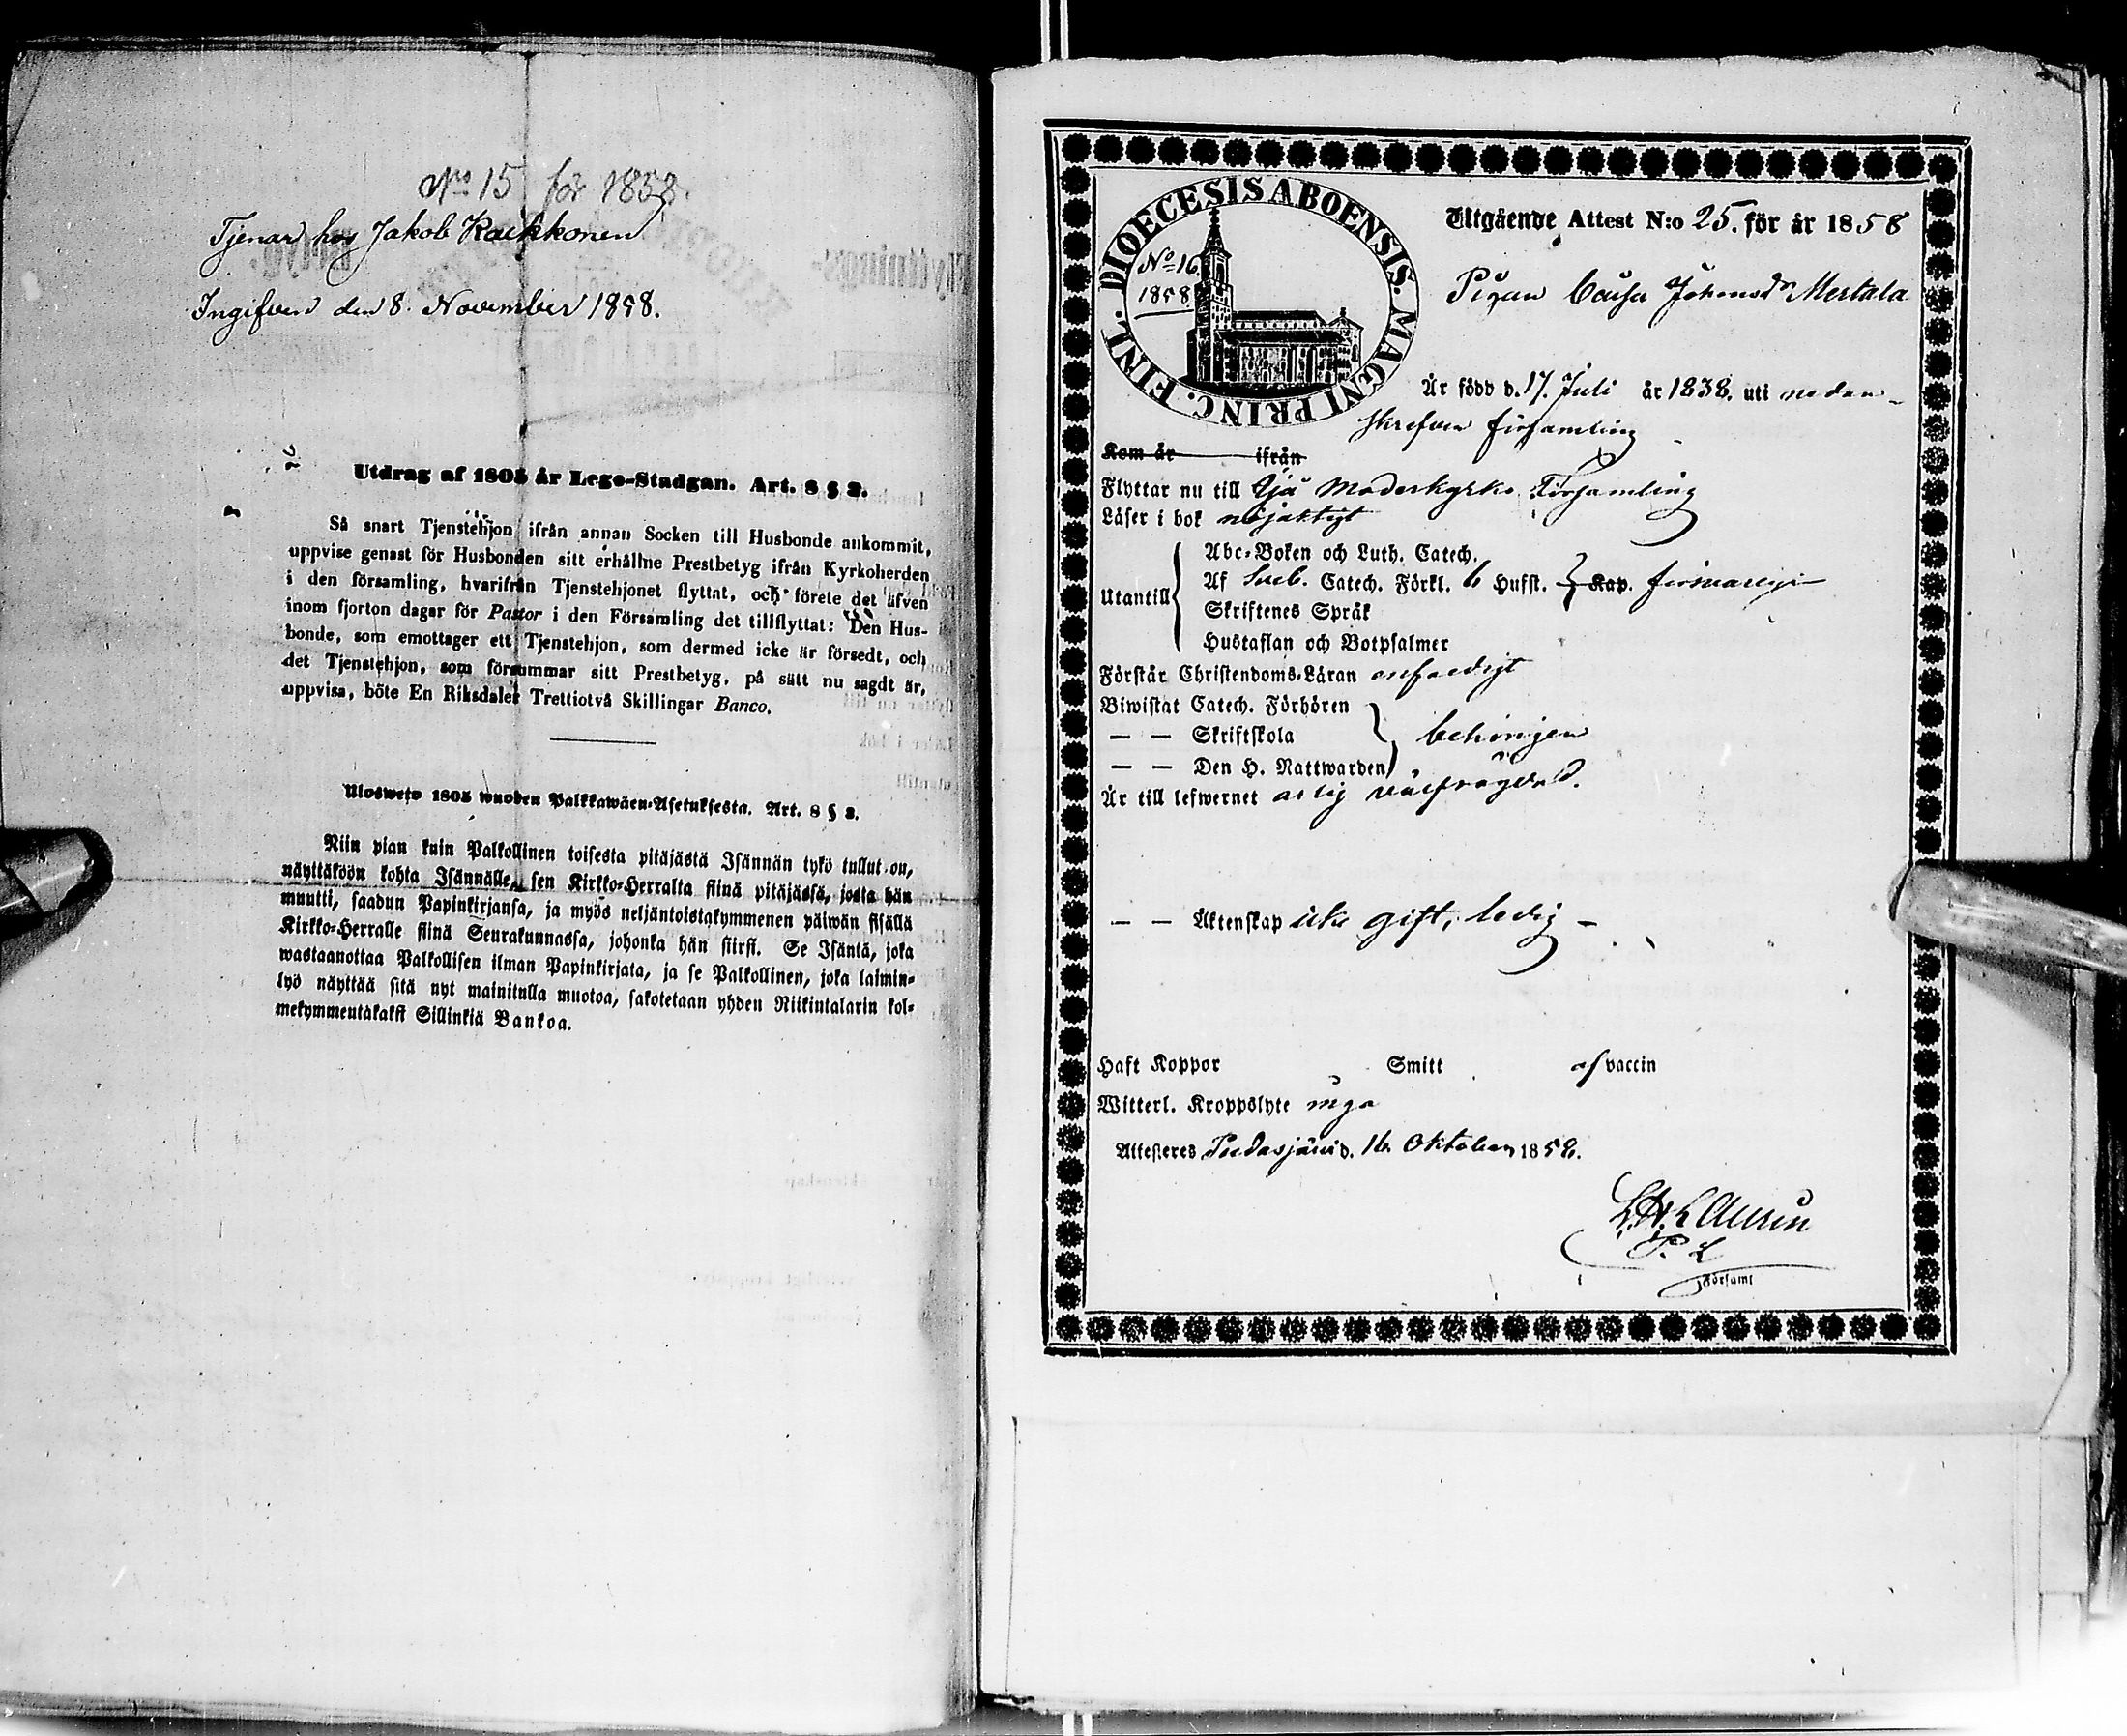 No 15 för 1858.
Tjenar hos Jakob Raikkonen
Ingifven den 8. November 1858.
Utdrag af 1805 år Lego-Stadgan. Art. 8 § 2.
Så snart Tjenstehjon ifrån annan Socken till Husbonde ankommit,
uppvise genast för Husbonden sitt erhållne Prestbetyg ifrån Kyrkoherden
i den församling, hvarifrån Tjenstehjonet flyttat, och förete det äfven
inom fjorton dagar för Pastor i den Församling det tillflyttat: Den Hus-
bonde, som emottager ett Tjenstehjon, som dermed icke är försedt, och
det Tjenstehjon, som försummar sitt Prestbetyg, på sätt nu sagdt är,
uppvisa, böte En Riksdaler Trettiotvå Skillingar Banco.
Ulosweto 1805 wuoden Palkkawäen-Asetuksesta. Art. 8 § 2.
Niin pian kuin Palkollinen toisesta pitäjästä Isännän tykö tullut on,
näyttäköön kohta Isännälle, sen Kirkko-Herralta siinä pitäjässä, josta hän
muutti, saadun Papinkirjansa, ja myös neljäntoistakymmenen päiwän sisällä
Kirkko-Herralle siinä Seurakunnassa, johonka hän siirsi. Se Isäntä, joka
wastaanottaa Palkollisen ilman Papinkirjata, ja se Palkollinen, joka laimin-
lyö näyttää sitä nyt mainitulla muotoa, sakotetaan yhden Riikintalarin kol-
mekymmentäkaksi Sillinkiä Bankoa.
DIOECESIS ABOENSIS. MAGNI PRINC. FINL.
No 16
1858
Utgående Attest N:o 25. för år 1858
Pigan Caisa Johansdr Mertala
Är född d. 17. Juli år 1838. uti nedan-
skrefven församling
Kom år ifrån
Flyttar nu till Ijå Moderkyrko Församling
Läser i bok nöjaktigt
Utantill
Abc-Boken och Luth. Catech.
Af Sveb. Catech. Förkl. 6 Hufst. Kap. försvarligen
Skriftenes Språk
Hustaflan och Botpsalmer
Förstår Christendoms-Läran enfaldigt
Biwistat Catech. Förhören
— — Skriftskola behörigen
— — Den H. Nattwarden
Är till lefwernet ärlig välfrägdad.
— — Äktenskap icke gift, ledig -
Haft Koppor Smitt af vaccin
Witterl. Kroppslyte inga
Attesteres Pudasjärvi d. 16 Oktober 1858.
P. L
Församl